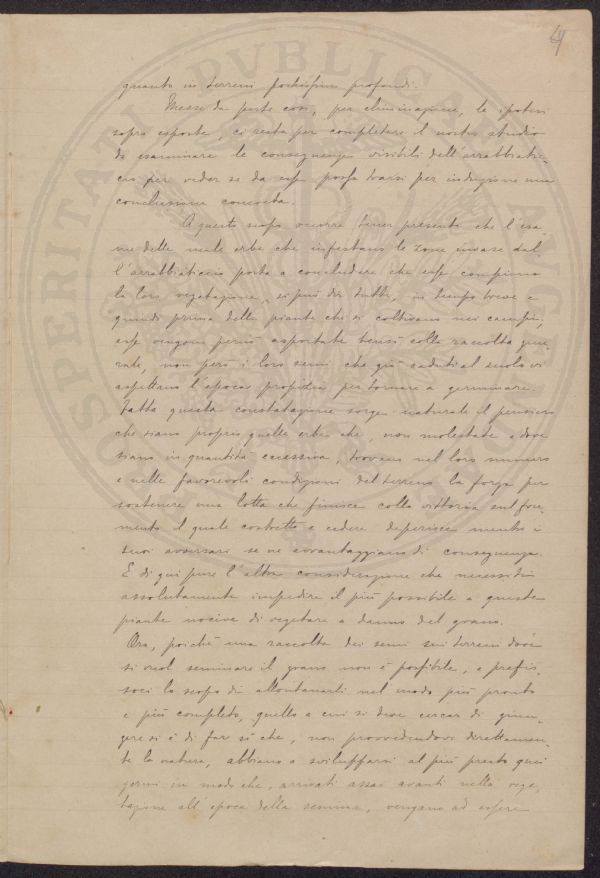 4
quanto in terreni pochissimo profondi.
Messe da parte così, per eliminazione, le ipotesi
sopra esposte, ci resta per completare il nostro studio
da esaminare le conseguenze visibili dell'arrabbiatic-
cio per veder se da esse possa trarsi per induzione una
conclusione concreta.
A questo scopo occorre tener presenti che l'esa-
me delle male erbe che infestano le zone invase dal-
l'arrabbiaticcio porta a concludere che esse compiono
la loro vegetazione, si può dir tutte, in tempo breve e
quindi prima delle piante che si coltivano nei campi;
esse vengono perciò asportate bensì colla raccolta gene-
rale, non però i loro semi che già caduti al suolo vi
aspettano l'epoca propizia per tornare a germinare.
Fatta questa constatazione sorge naturale il pensiero
che siano proprio quelle erbe che, non molestate e dove
siano in quantità eccessiva, trovano nel loro numero
e nelle favorevoli condizioni del terreno la forza per
sostenere una lotta che finisce colla vittoria sul for-
mento il quale costretto a cedere deperisce mentre i
suoi avversari se ne avvantaggiano di conseguenza.
E di qui pure l'altra considerazione che necessiti
assolutamente impedire il più possibile a queste
piante nocive di vegetare a danno del grano.
Ora, poichè una raccolta dei semi sui terreni dove
si vuol seminare il grano non è possibile, e prefis-
soci lo scopo di allontanarli nel modo più pronto
e più completo, quello a cui si deve cercar di giun-
gere si è di far sì che, non provvedendovi direttamen-
te la natura, abbiano a svilupparsi al più presto quei
germi in modo che, arrivati assai avanti nella vege-
tazione all'epoca della semina, vengano ad essere